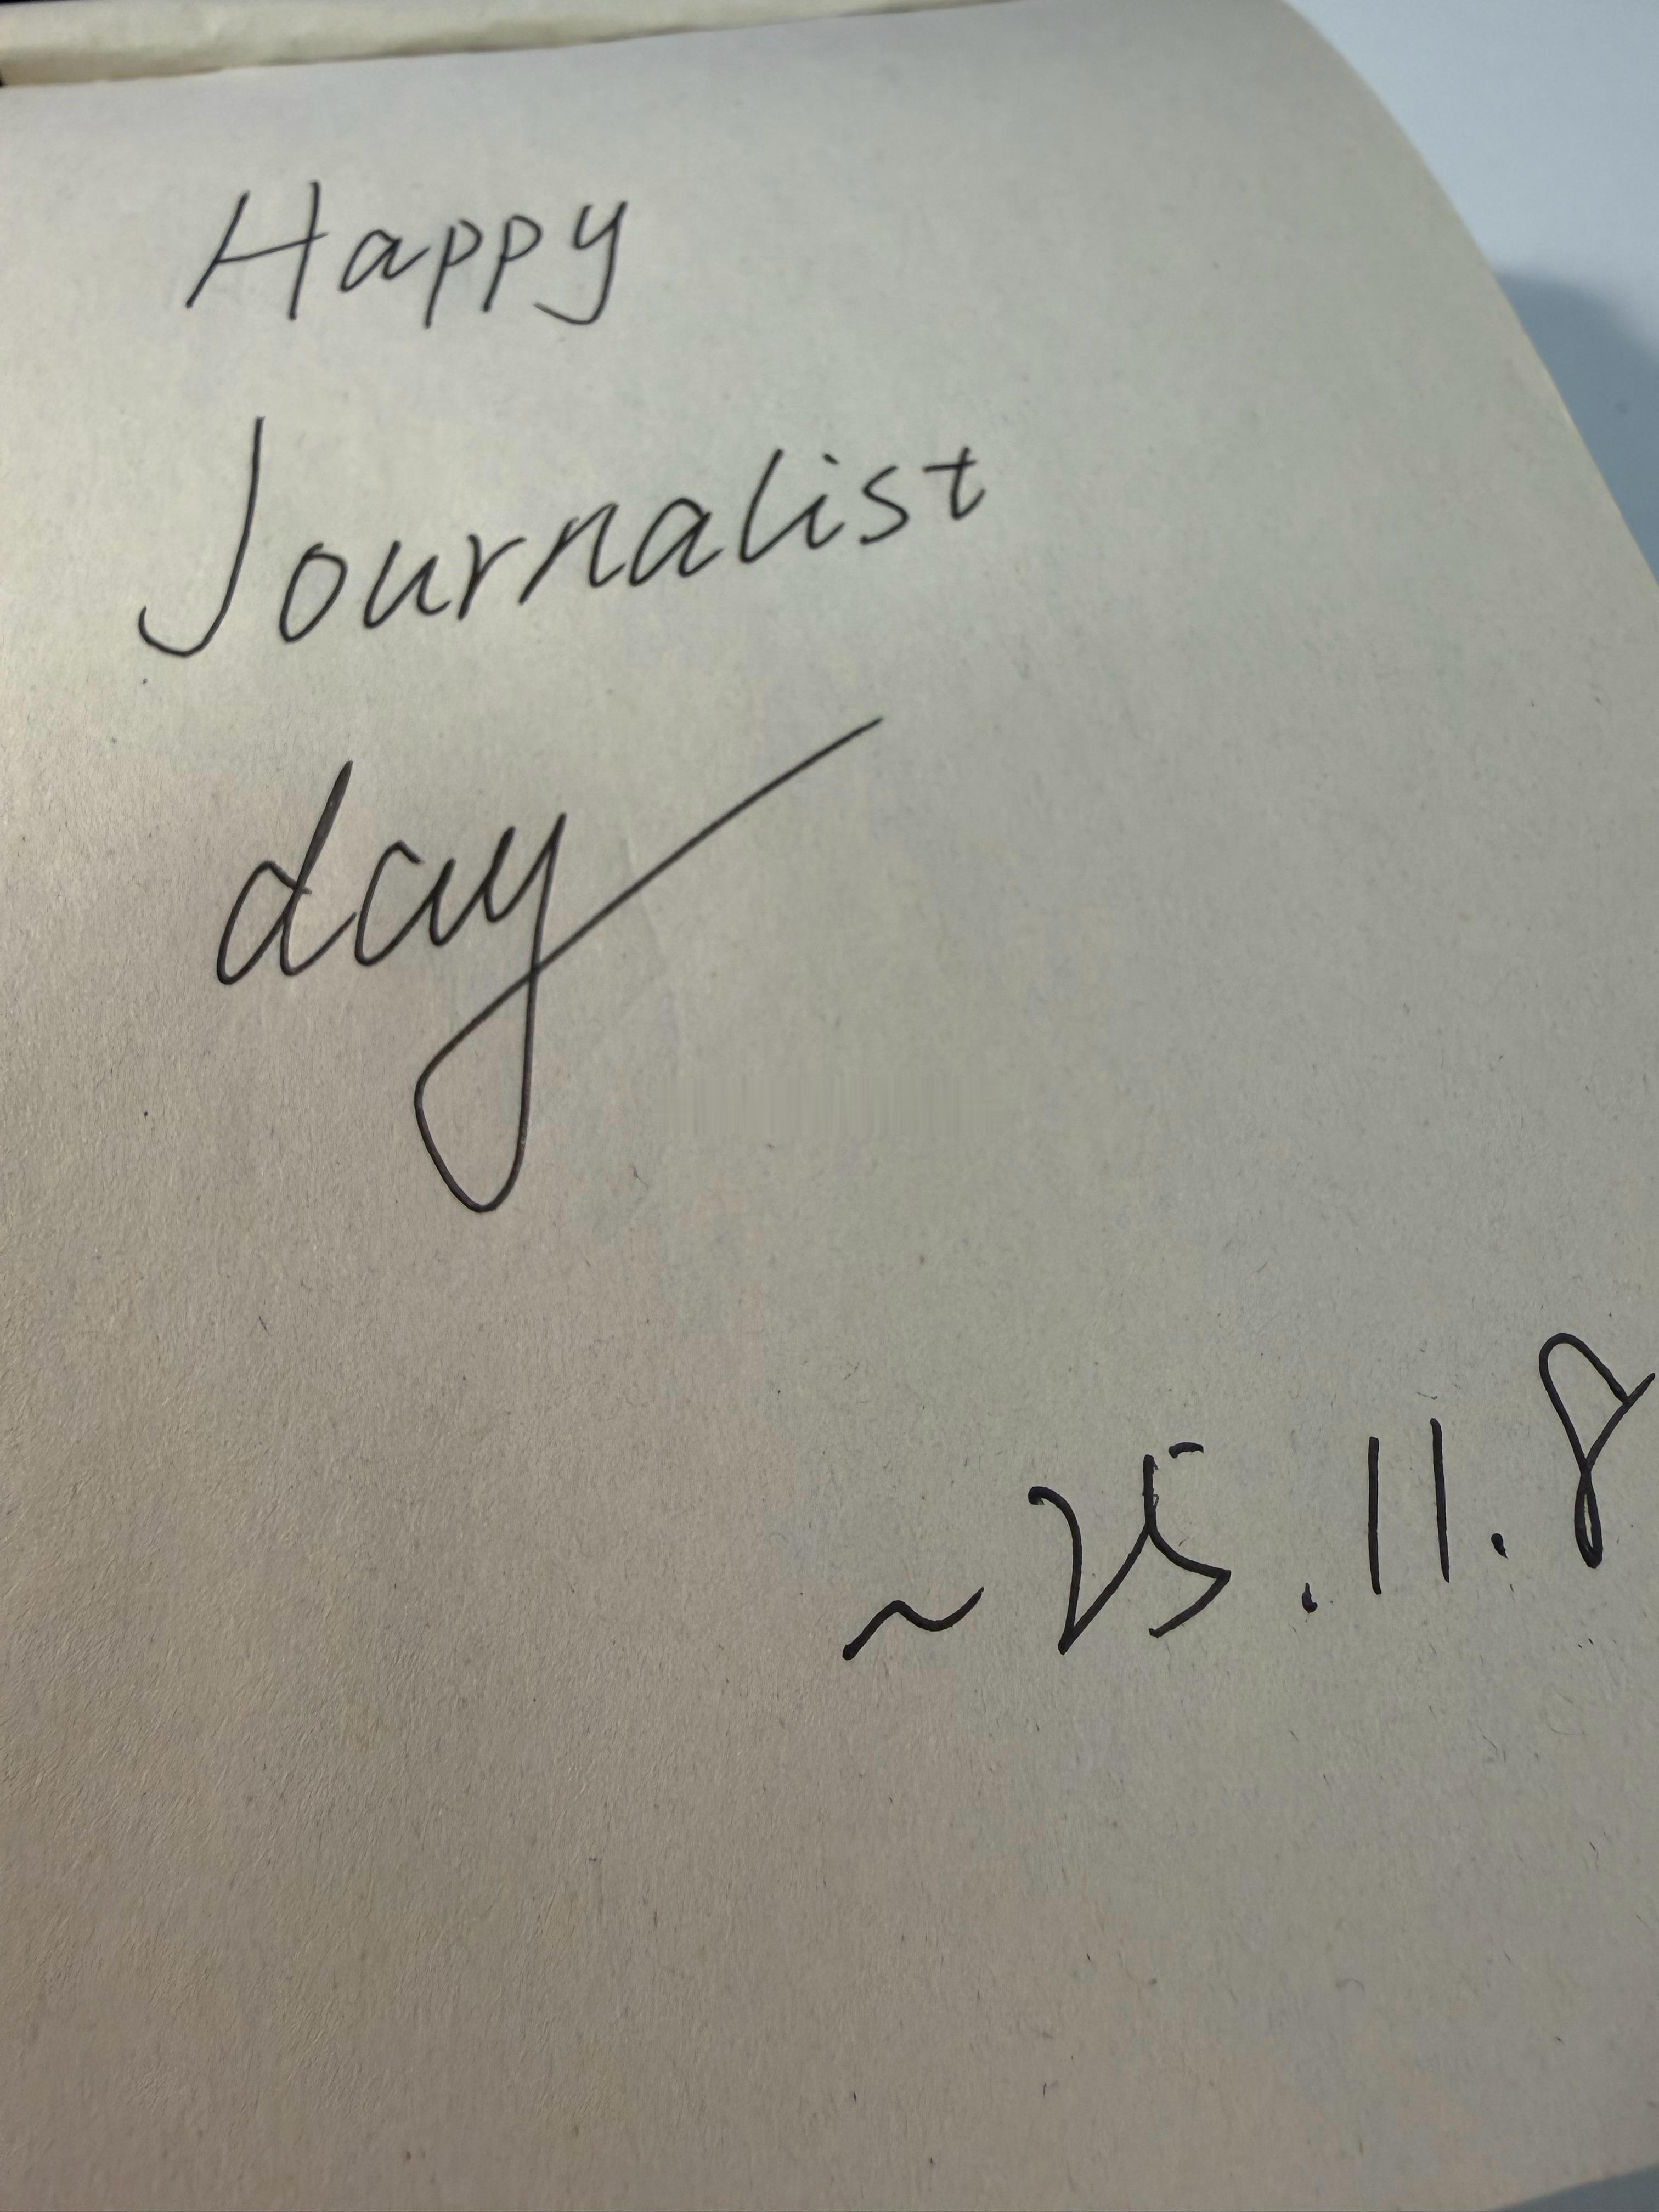 Happy
Journalist
day
~25.11.8